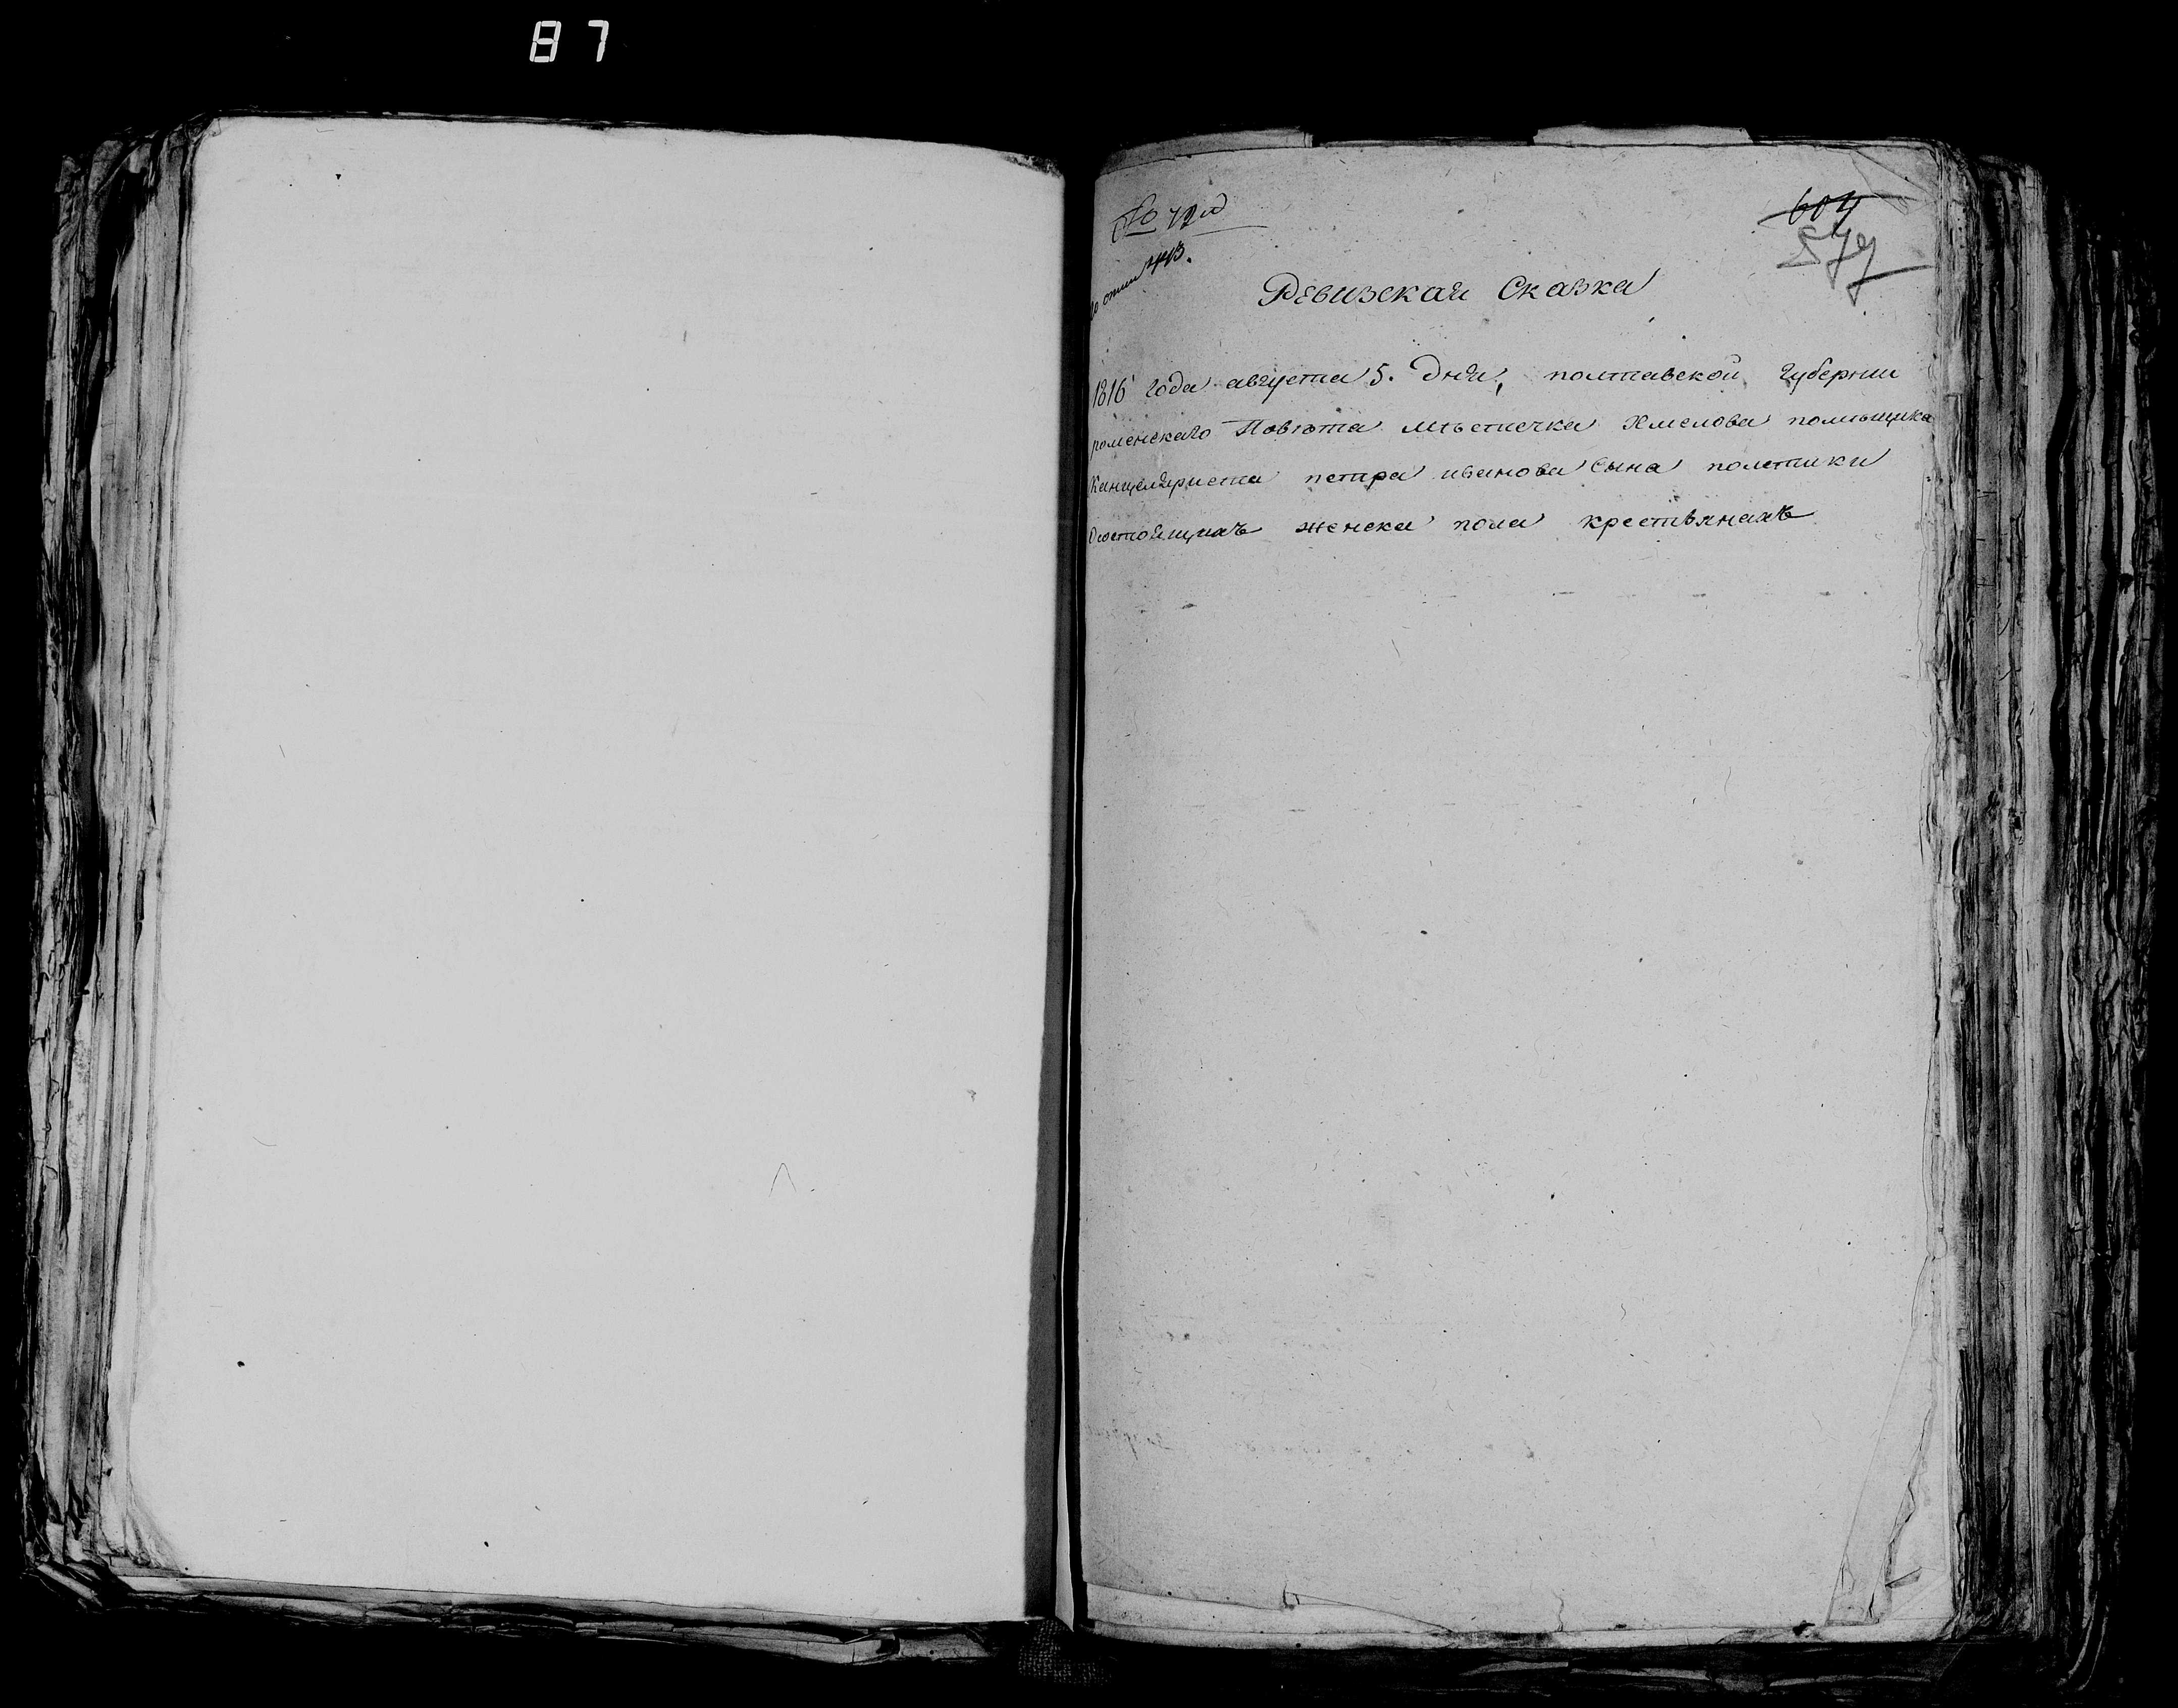 87
604
579
Ревизская Сказка
1816 года августа 5. дня, полтавской губернии
роменскаго Повѣта мѣстечка Хмелова помѣщика
Канцеляриста петра иванова Сына полетики
Осостоящихъ женска пола крестьянахъ